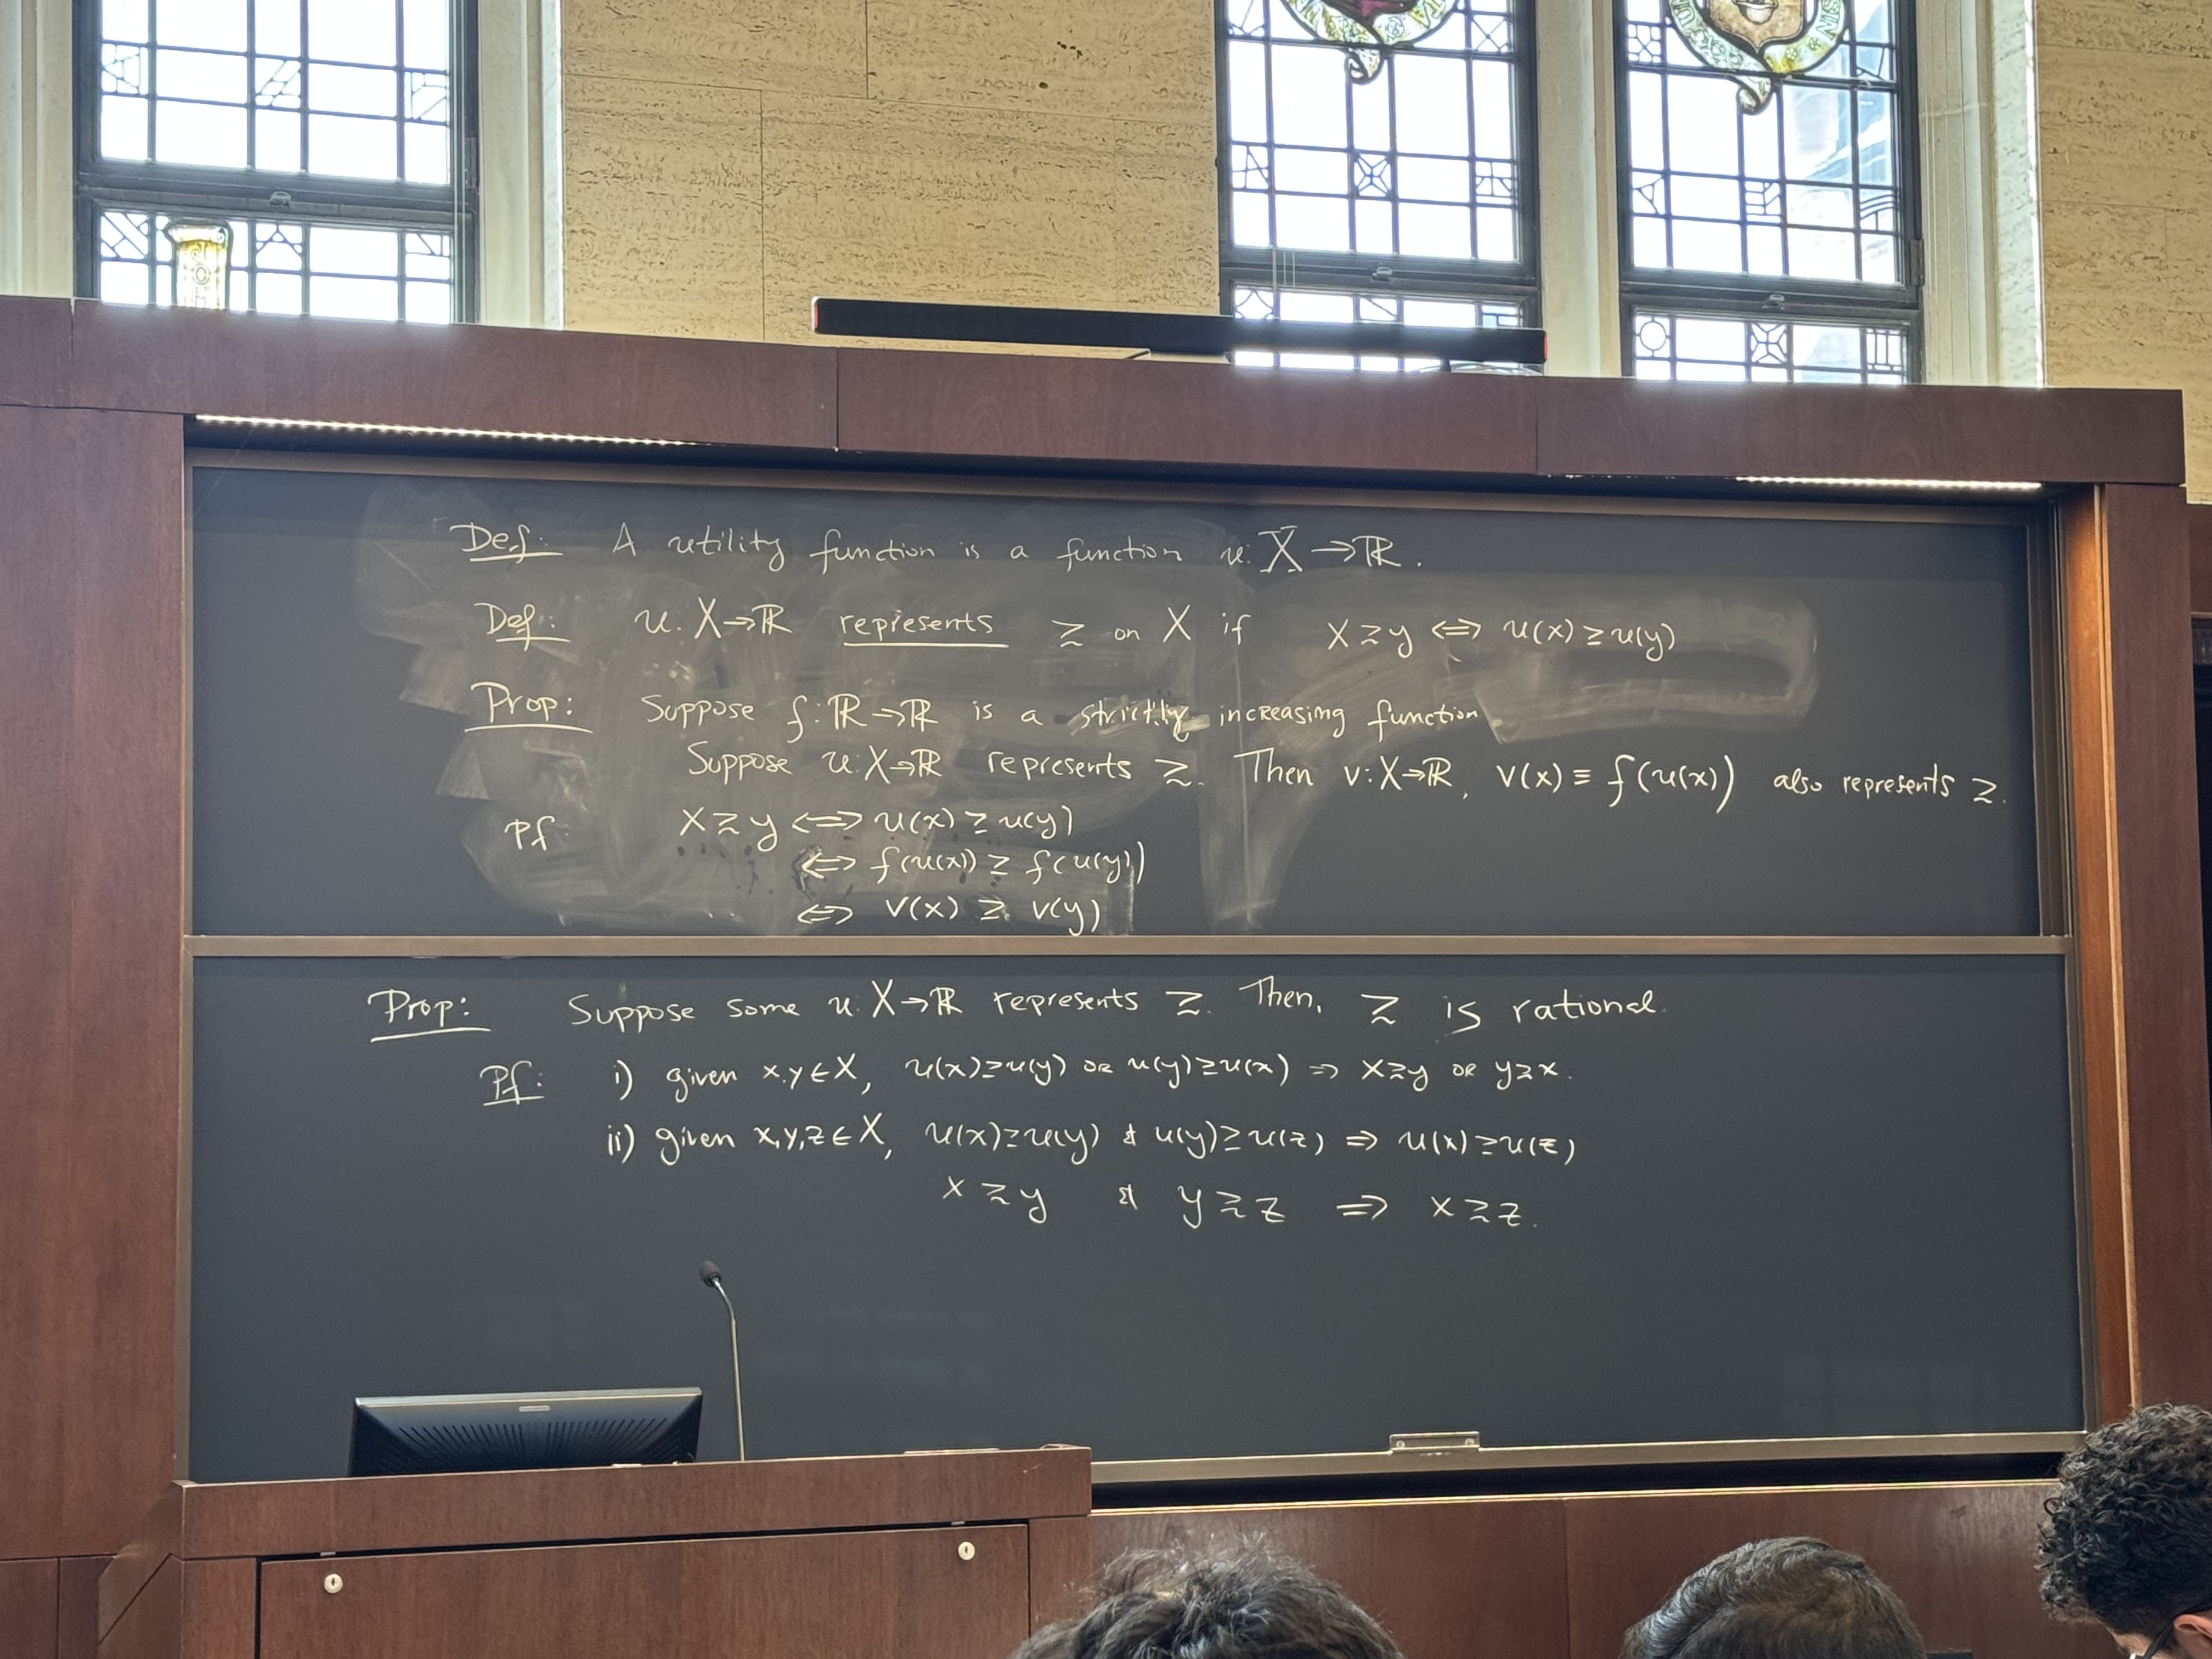 Def: A utility function is a function u: X → ℝ.
Def: u: X → ℝ represents ≿ on X if x ≿ y ⟺ u(x) ≥ u(y)
Prop: Suppose f: ℝ → ℝ is a strictly increasing function
Suppose u: X → ℝ represents ≿. Then v: X → ℝ, v(x) ≡ f(u(x)) also represents ≿.
Pf x ≿ y ⟺ u(x) ≥ u(y)
⟺ f(u(x)) ≥ f(u(y))
⟺ v(x) ≥ v(y)
Prop: Suppose some u: X → ℝ represents ≿. Then, ≿ is rational.
Pf: i) given x,y ∈ X, u(x) ≥ u(y) or u(y) ≥ u(x) ⇒ x ≿ y or y ≿ x.
ii) given x,y,z ∈ X, u(x) ≥ u(y) & u(y) ≥ u(z) ⇒ u(x) ≥ u(z)
x ≿ y & y ≿ z ⇒ x ≿ z.